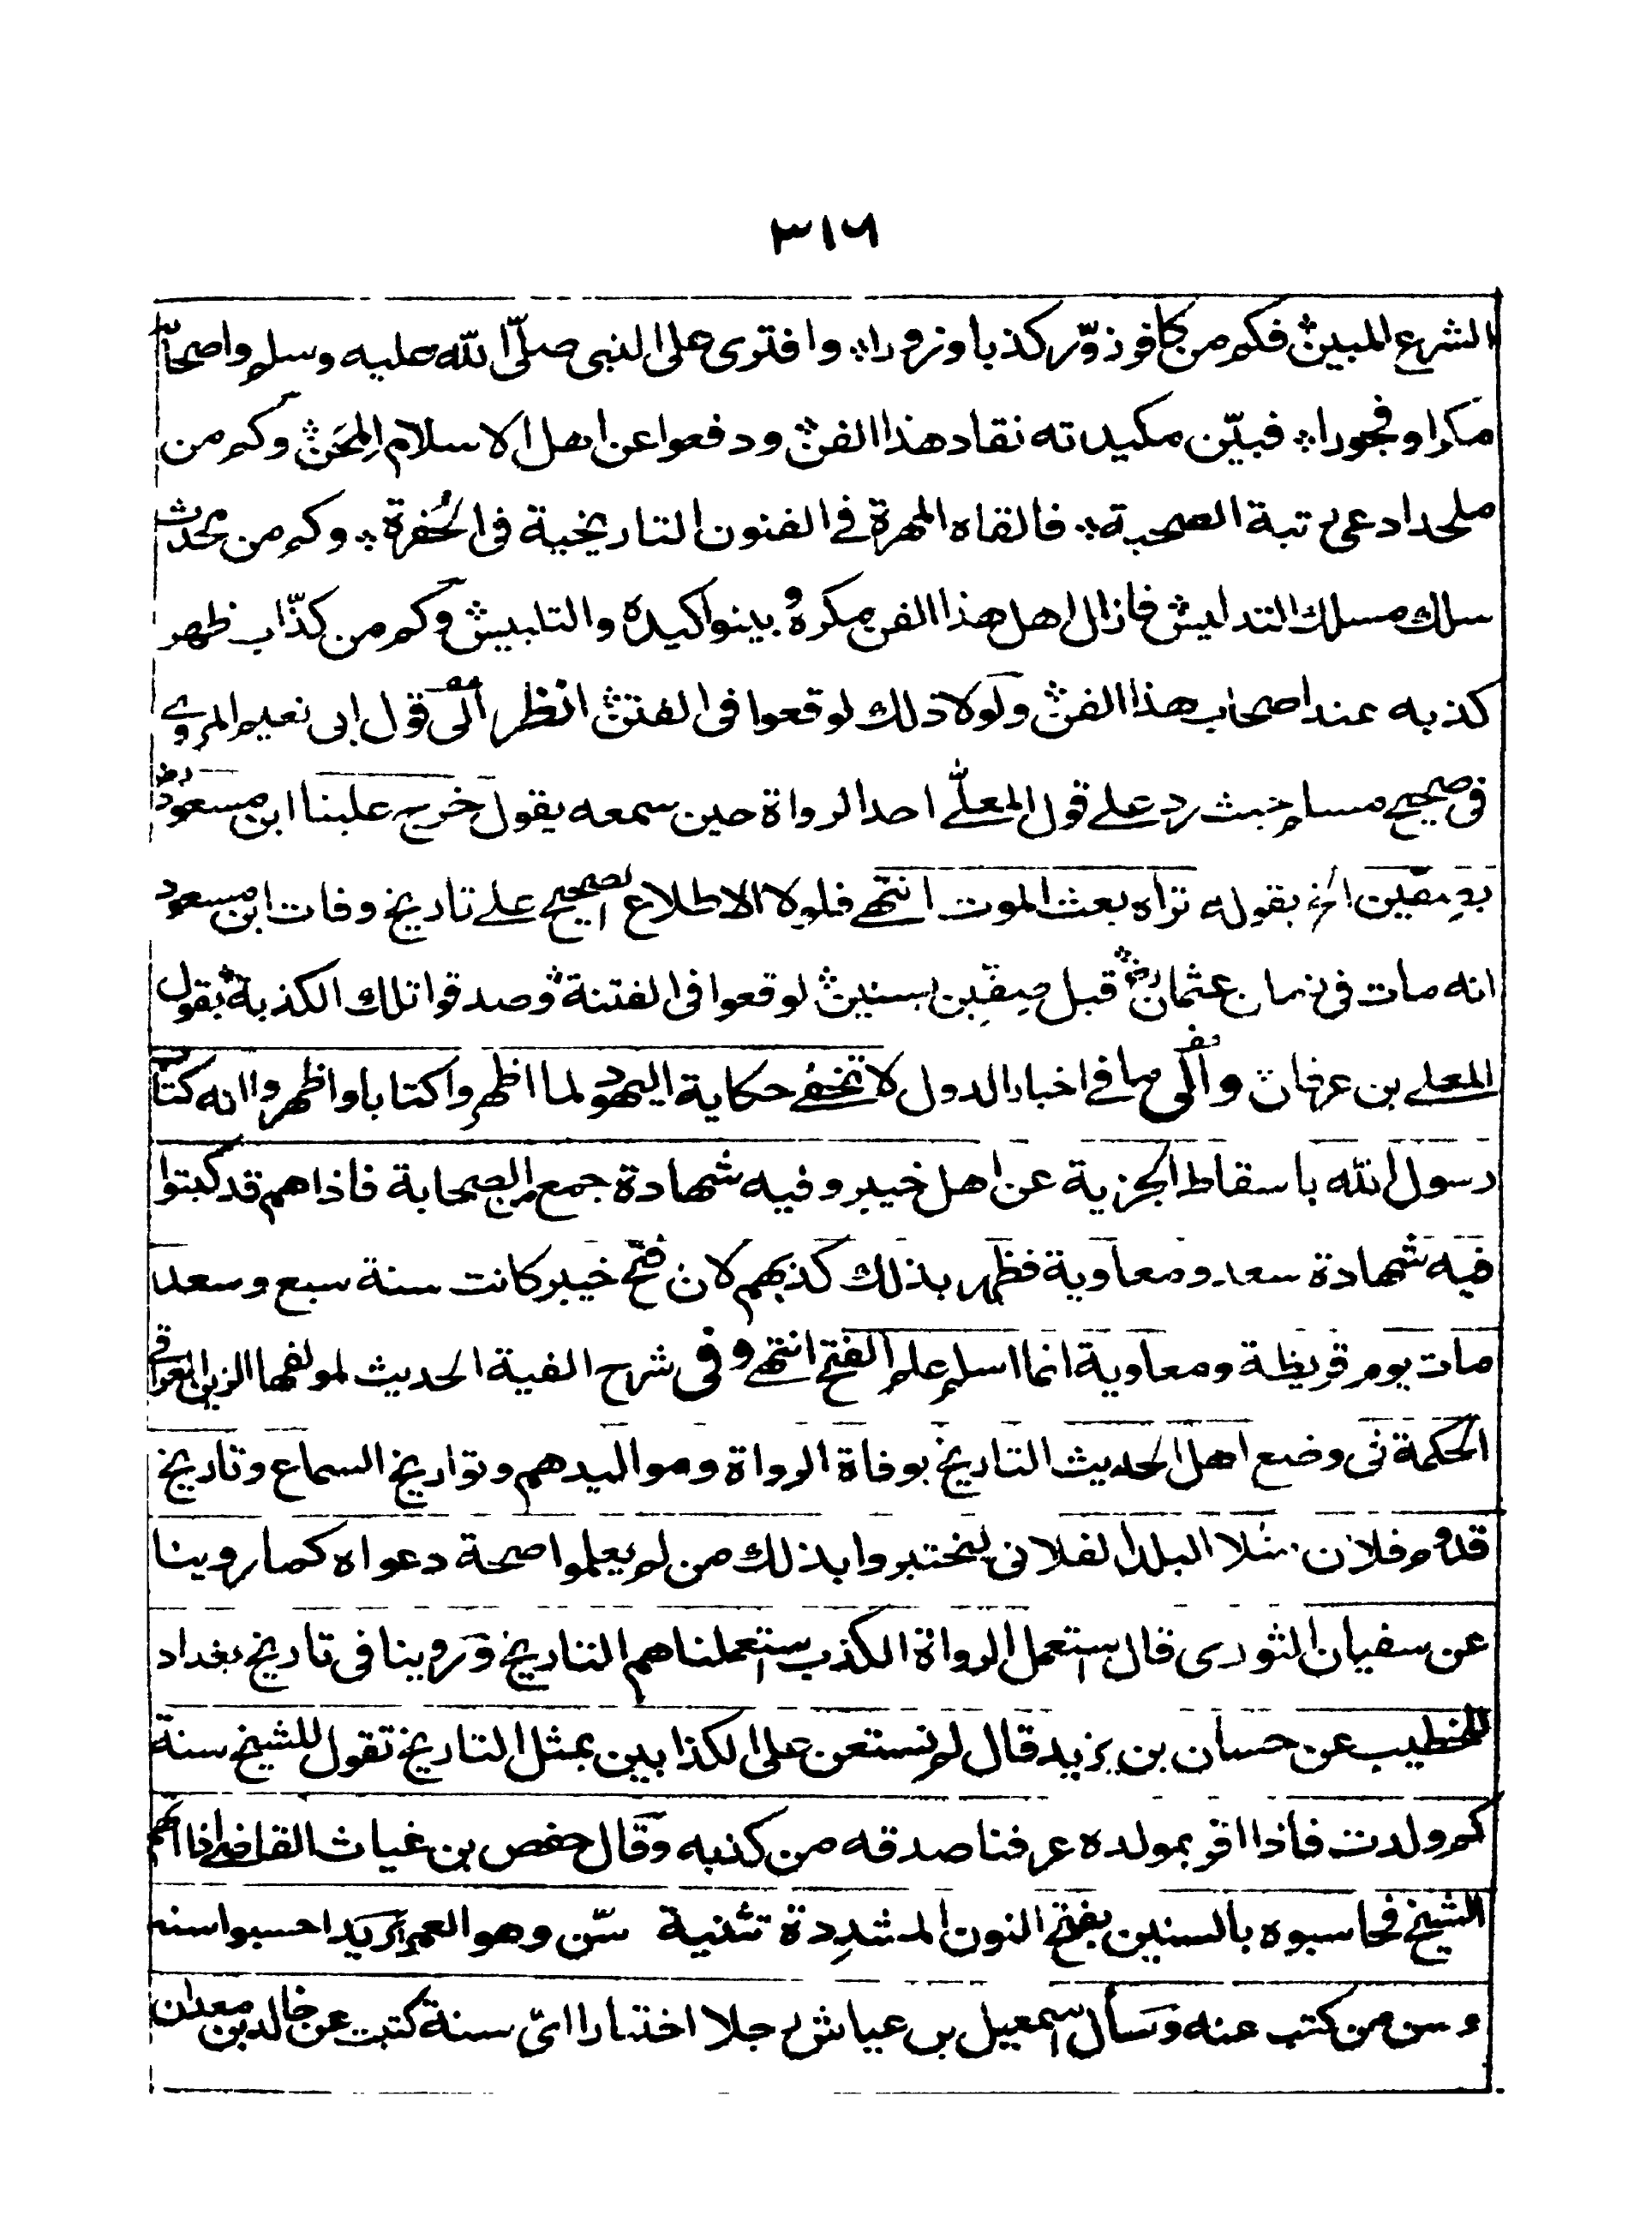 ٣١٦
الشرع المبين؞ فكم من كافر ذوّر كذبا وزورا؞ وافترى على النبي صلّى الله عليه وسلم واصحابه
مكرا وفجورا؞ فبيّن مكيدته نقاد هذا الفن؞ ودفعوا عن اهل الاسلام المِحَن؞ وكم من
ملحد ادعى رتبة الصحبة؞ فالقاه المهرة في الفنون التاريخية في الحُفرة؞ وكم من محدث
سلك مسلك التدليس؞ فازال اهل هذا الفن مكرهُ وبينوا كيده والتلبيس؞ وكم من كذّاب ظهر
كذبه عند اصحاب هذا الفن؞ ولولا ذلك لوقعوا في الفتن؞ انظر الى قول ابي نعيم المروي
في صحيح مسلم حيث رد على قول المعلّى احد الرواة حين سمعه يقول خرج علينا ابن مسعودرض
بصفين الخ بقوله تراه بعث الموت انتهى فلولا الاطلاع الصحيح على تاريخ وفات ابن مسعود
انه مات في زمان عثمان رض؞ قبل صِفّين بسنين؞ لوقعوا في الفتنة؞ وصدقوا تلك الكذبة؞ بقول
المعلى بن عرفان؞ والى ما في اخبار الدول لا تخفى حكاية اليهود لما اظهروا كتابا واظهروا انه كتاب
رسول الله باسقاط الجزية عن اهل خيبر وفيه شهادة جمع من الصحابة فاذا هم قد كتبوا
فيه شهادة سعد ومعاوية فظهر بذلك كذبهم لان فتح خيبر كانت سنة سبع وسعد
مات يوم قريظة ومعاوية انما اسلم عام الفتح انتهى وفى شرح الفية الحديث لمولفها الزين العراقي
الحكمة في وضع اهل الحديث التاريخ بوفاة الرواة ومواليدهم وتواريخ السماع وتاريخ
قدوم فلان مثلا البلد الفلاني ليختبروا بذلك من لم يعلموا صحة دعواه كما روينا
عن سفيان الثوري قال استعمل الرواة الكذب استعملنا هم التاريخ وَروينا في تاريخ بغداد
للخطيب عن حسان بن يزيد قال لم نستعن على الكذابين بمثل التاريخ تقول للشيخ سنة
كم ولدت فاذا اقر بمولده عرفنا صدقه من كذبه وَقال حفص بن غياث القاضي اذا اتهم
الشيخ فحاسبوه بالسنين بفتح النون المشددة تثنية سّن وهو العمر يريد احسبوا سنه
وسن من كتب عنه وَسأل اسمعيل بن عياش رجلا اختبارا اىّ سنة كتبت عن خالد بن معدان